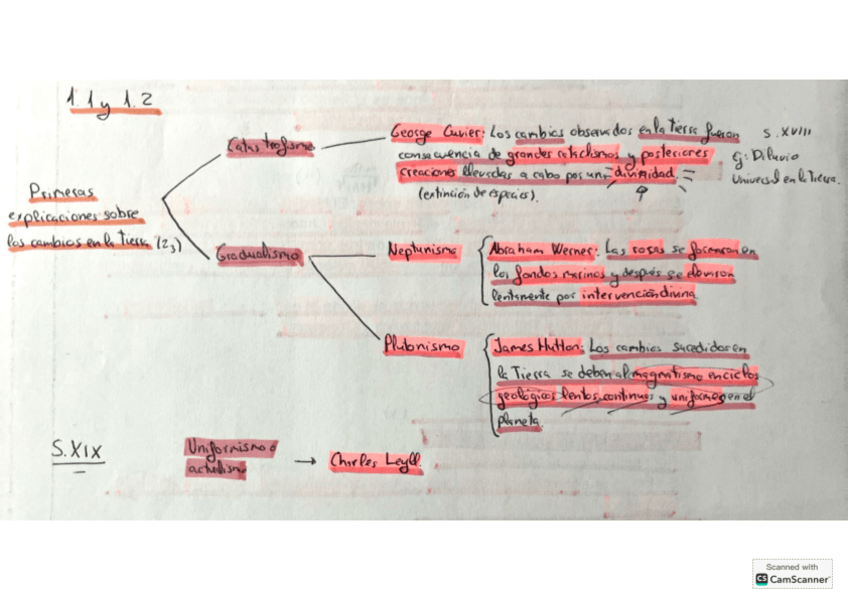 1.1 y 1.2
Catastrofismo
George Cuvier: Los cambios observados en la tierra fueron
consecuencia de grandes cataclismos y posteriores
creaciones llevadas a cabo por una divinidad.
(extinción de especies).
S. XVIII
Ej: Diluvio
Universal en la Tierra.
Primeras
explicaciones sobre
los cambios en la Tierra
Gradualismo
Neptunismo
Abraham Werner: Las rocas se formaron en
los fondos marinos y después se elevaron
lentamente por intervención divina.
Plutonismo
James Hutton: Los cambios sucedidos en
la Tierra se deben al magmatismo en ciclos
geológicos lentos, continuos y uniformes en el
planeta.
S. XIX
Uniformismo o
actualismo
→ Charles Leyll.
Scanned with
CS CamScanner